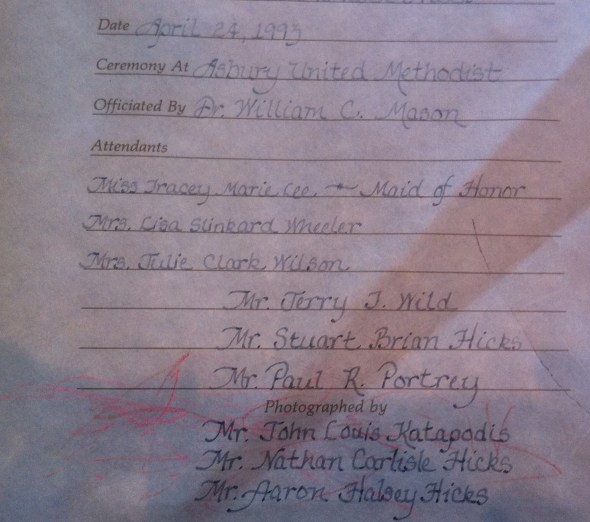 Date April 24, 1993
Ceremony At Asbury United Methodist
Officiated By Dr. William C. Mason
Attendants
Miss Tracey Marie Lee ~ Maid of Honor
Mrs. Lisa Slinkard Wheeler
Mrs. Julie Clark Wilson
Mr. Terry J. Wild
Mr. Stuart Brian Hicks
Mr. Paul R. Portrey
Photographed by
Mr. John Louis Katapodis
Mr. Nathan Carlisle Hicks
Mr. Aaron Halsey Hicks